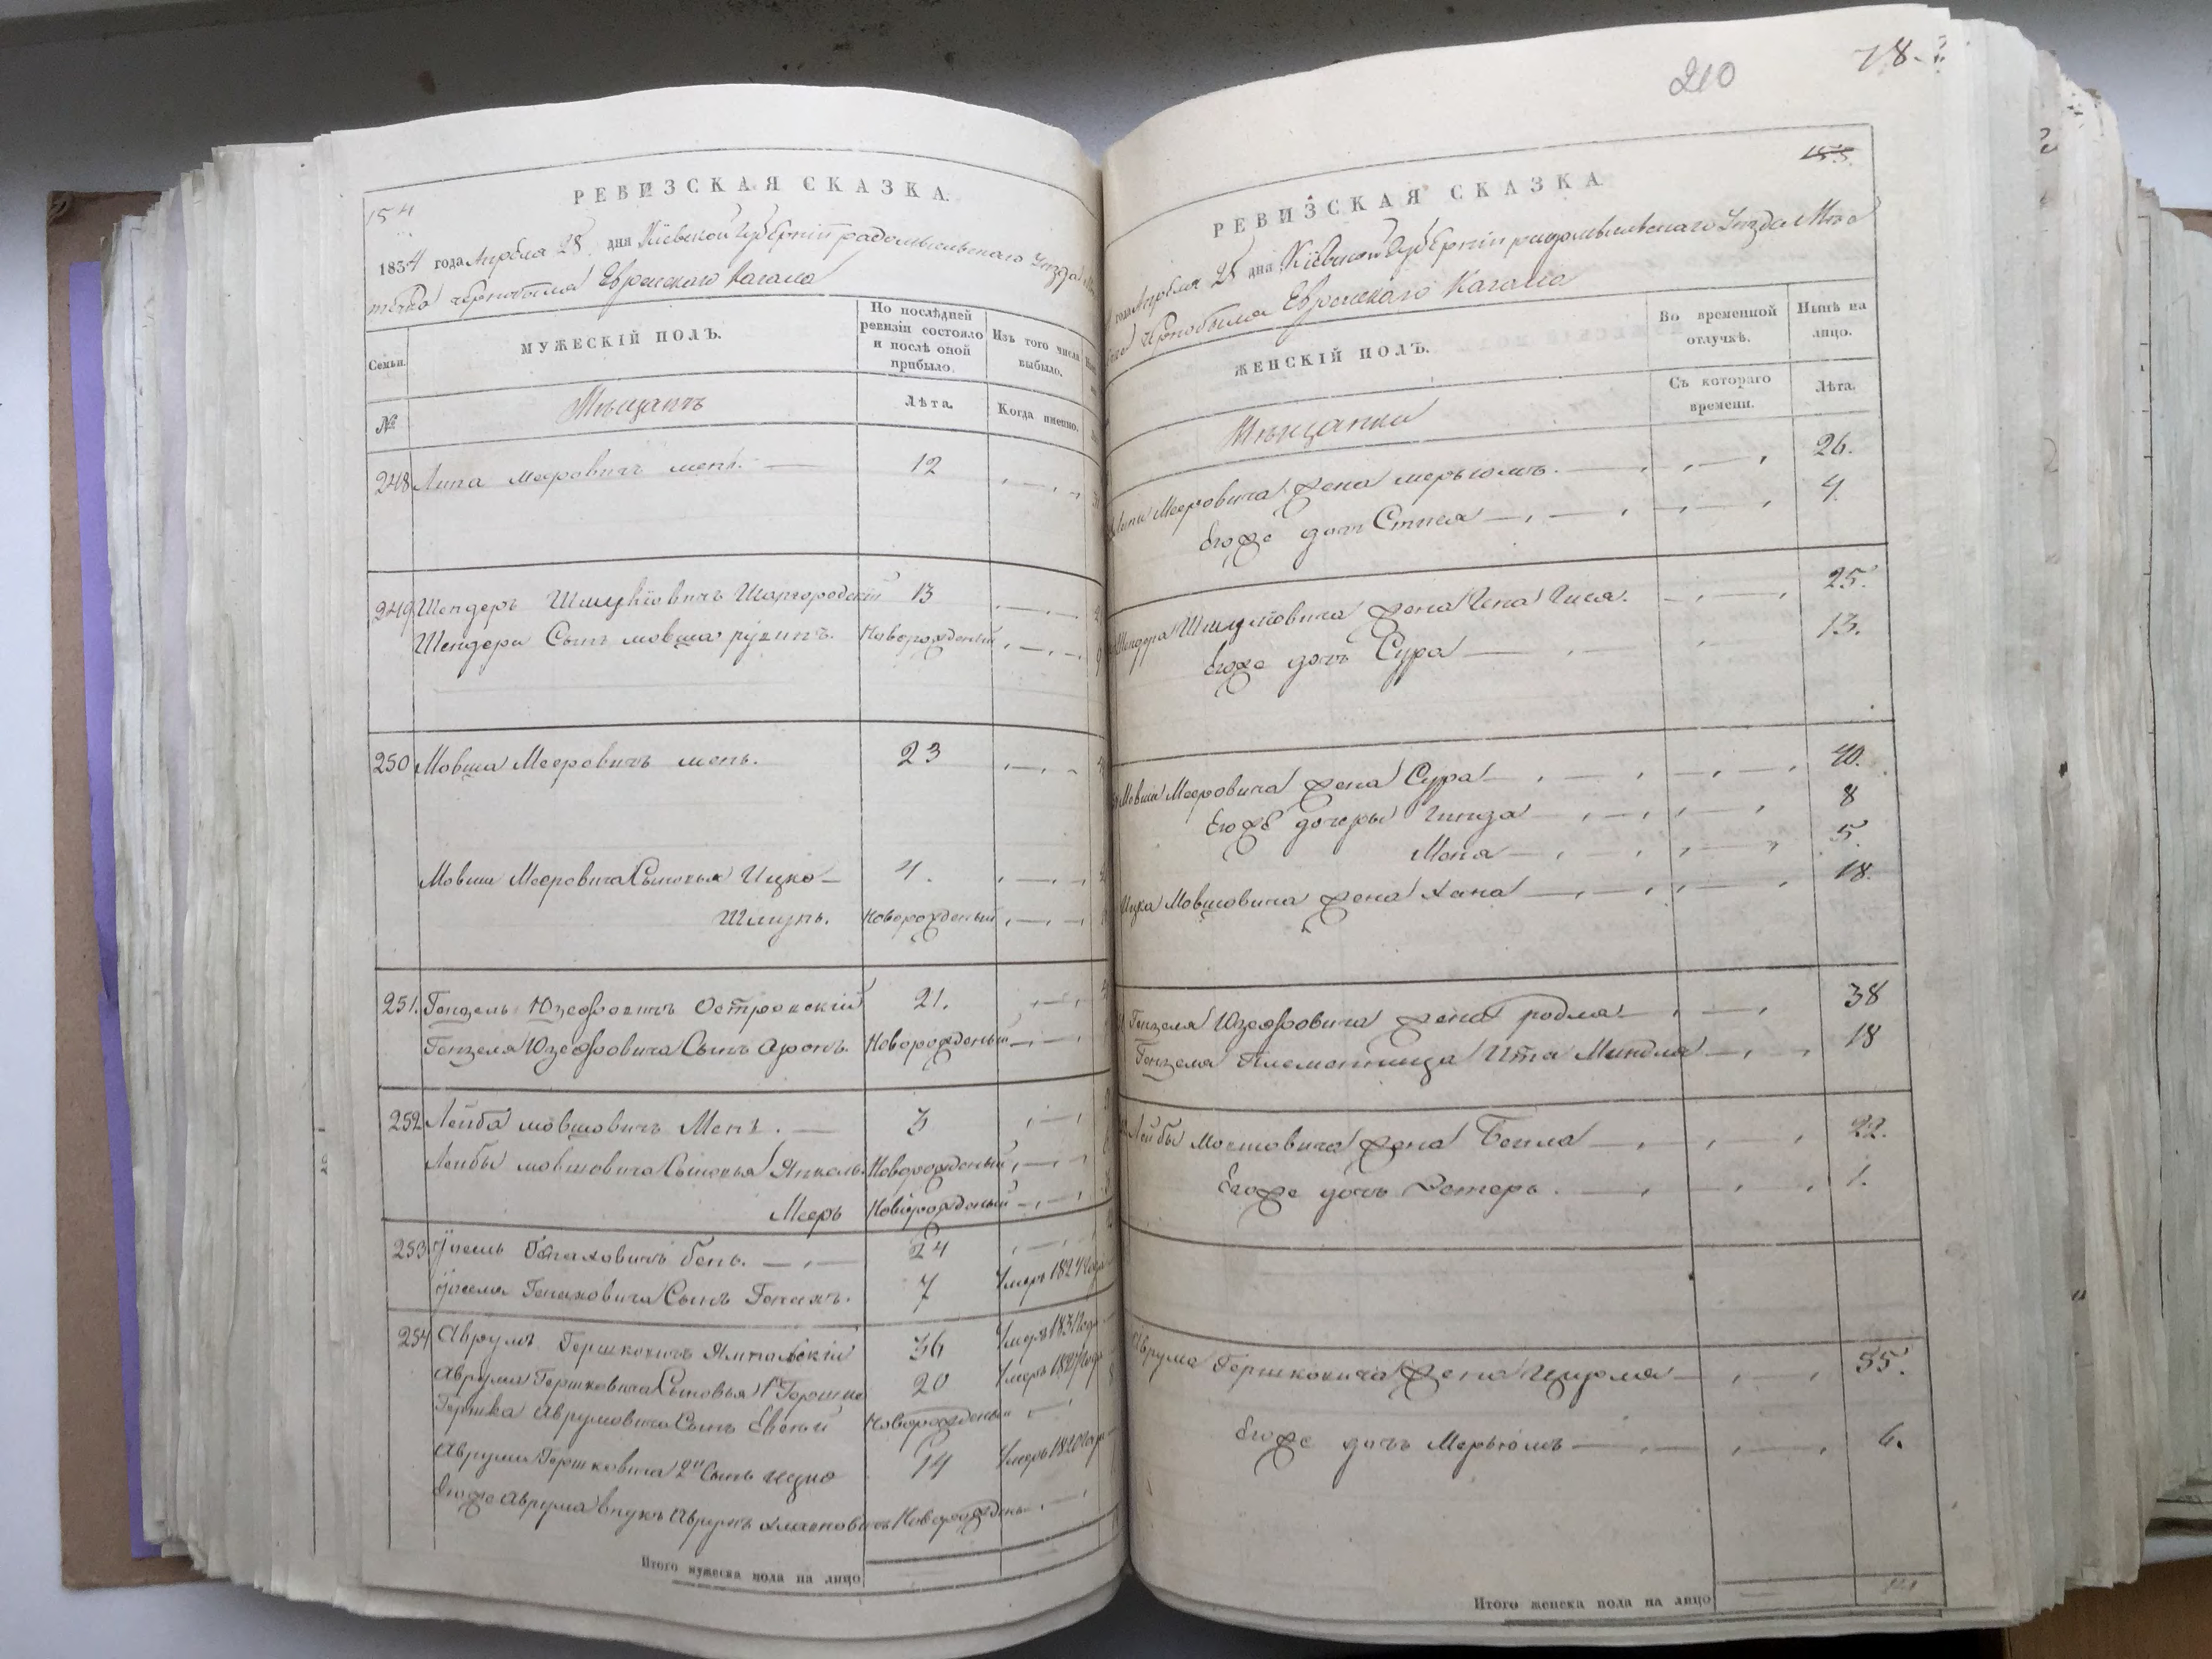 154
РЕВИЗСКАЯ СКАЗКА.
1834 года Апреля 28 дня Кіевской Губерніи радомысльскаго Уезда
течка чернобыля Еврейскаго Кагала
Семьи.
МУЖЕСКІЙ ПОЛЪ.
По послѣдней ревизіи состояло и послѣ оной прибыло.
Изъ того числа выбыло.
№
Мещанъ
Лѣта.
Когда именно.
248 Липа Мееровичъ менъ. — 12
249 Шендеръ Шмулiовичъ Шаргородскій 13
Шендера Сынъ мовша рувинъ. Новорожденый
250 Мовша Мееровичъ менъ. 23
Мовши Мееровича Сыновья Ицко — 4.
Шмунь. Новорожденый
251. Гензель Юзефовичъ Островскій 21.
Гензеля Юзефовича Сынъ аронъ. Новорожденый
252 Лейба мовшовичъ Менъ. — 3
Лейбы мовшовича Сыновья Янкель Новорожденый
Мееръ Новорожденый
253 Генаховичъ бенъ. — 24
Генаховича Сынъ Генахъ. 7 Умеръ 1824 года
254 Аврумъ Гершковичъ Ямпольскій 36 Умеръ 1831 года
Аврума Гершковича Сыновья 1й Гершко 20 Умеръ 1827 года
Гершка Аврумовича Сынъ Евсей Новорожденый
Аврума Гершковича 2й Сынъ ицко 14 Умеръ 1820 года
Егоже Аврума внукъ Аврумъ Новорожденъ
Итого мужеска пола на лицо
210
78.
153.
РЕВИЗСКАЯ СКАЗКА
года Апреля 28 дня Кіевской Губерніи радомысльскаго Уезда Мес
Чернобыля Еврейскаго Кагала
ЖЕНСКІЙ ПОЛЪ.
Во временной отлучкѣ.
Нынѣ на лицо.
Мещанки
Съ котораго времени.
Лѣта.
Липы Мееровича жена мерьюмъ. — 26.
Егоже дочь Стися — 4.
Шендера Шмулiовича жена Чена Гися. 25.
Егоже дочь Сура — 13.
Мовши Мееровича жена Сура — 40.
Егоже дочеры Гинда — 8
Моня — 5.
Ицка Мовшовича жена Хана — 18.
Гензеля Юзефовича жена родля — 38
Гензеля Племенница Ита Миндля — 18
Лейбы Мовшовича жена Бейла — 22.
Егоже дочь Эстеръ. — 1.
Аврума Гершковича жена Цирля — 55.
Егоже дочь Мерьюмъ — 6.
Итого женска пола на лицо